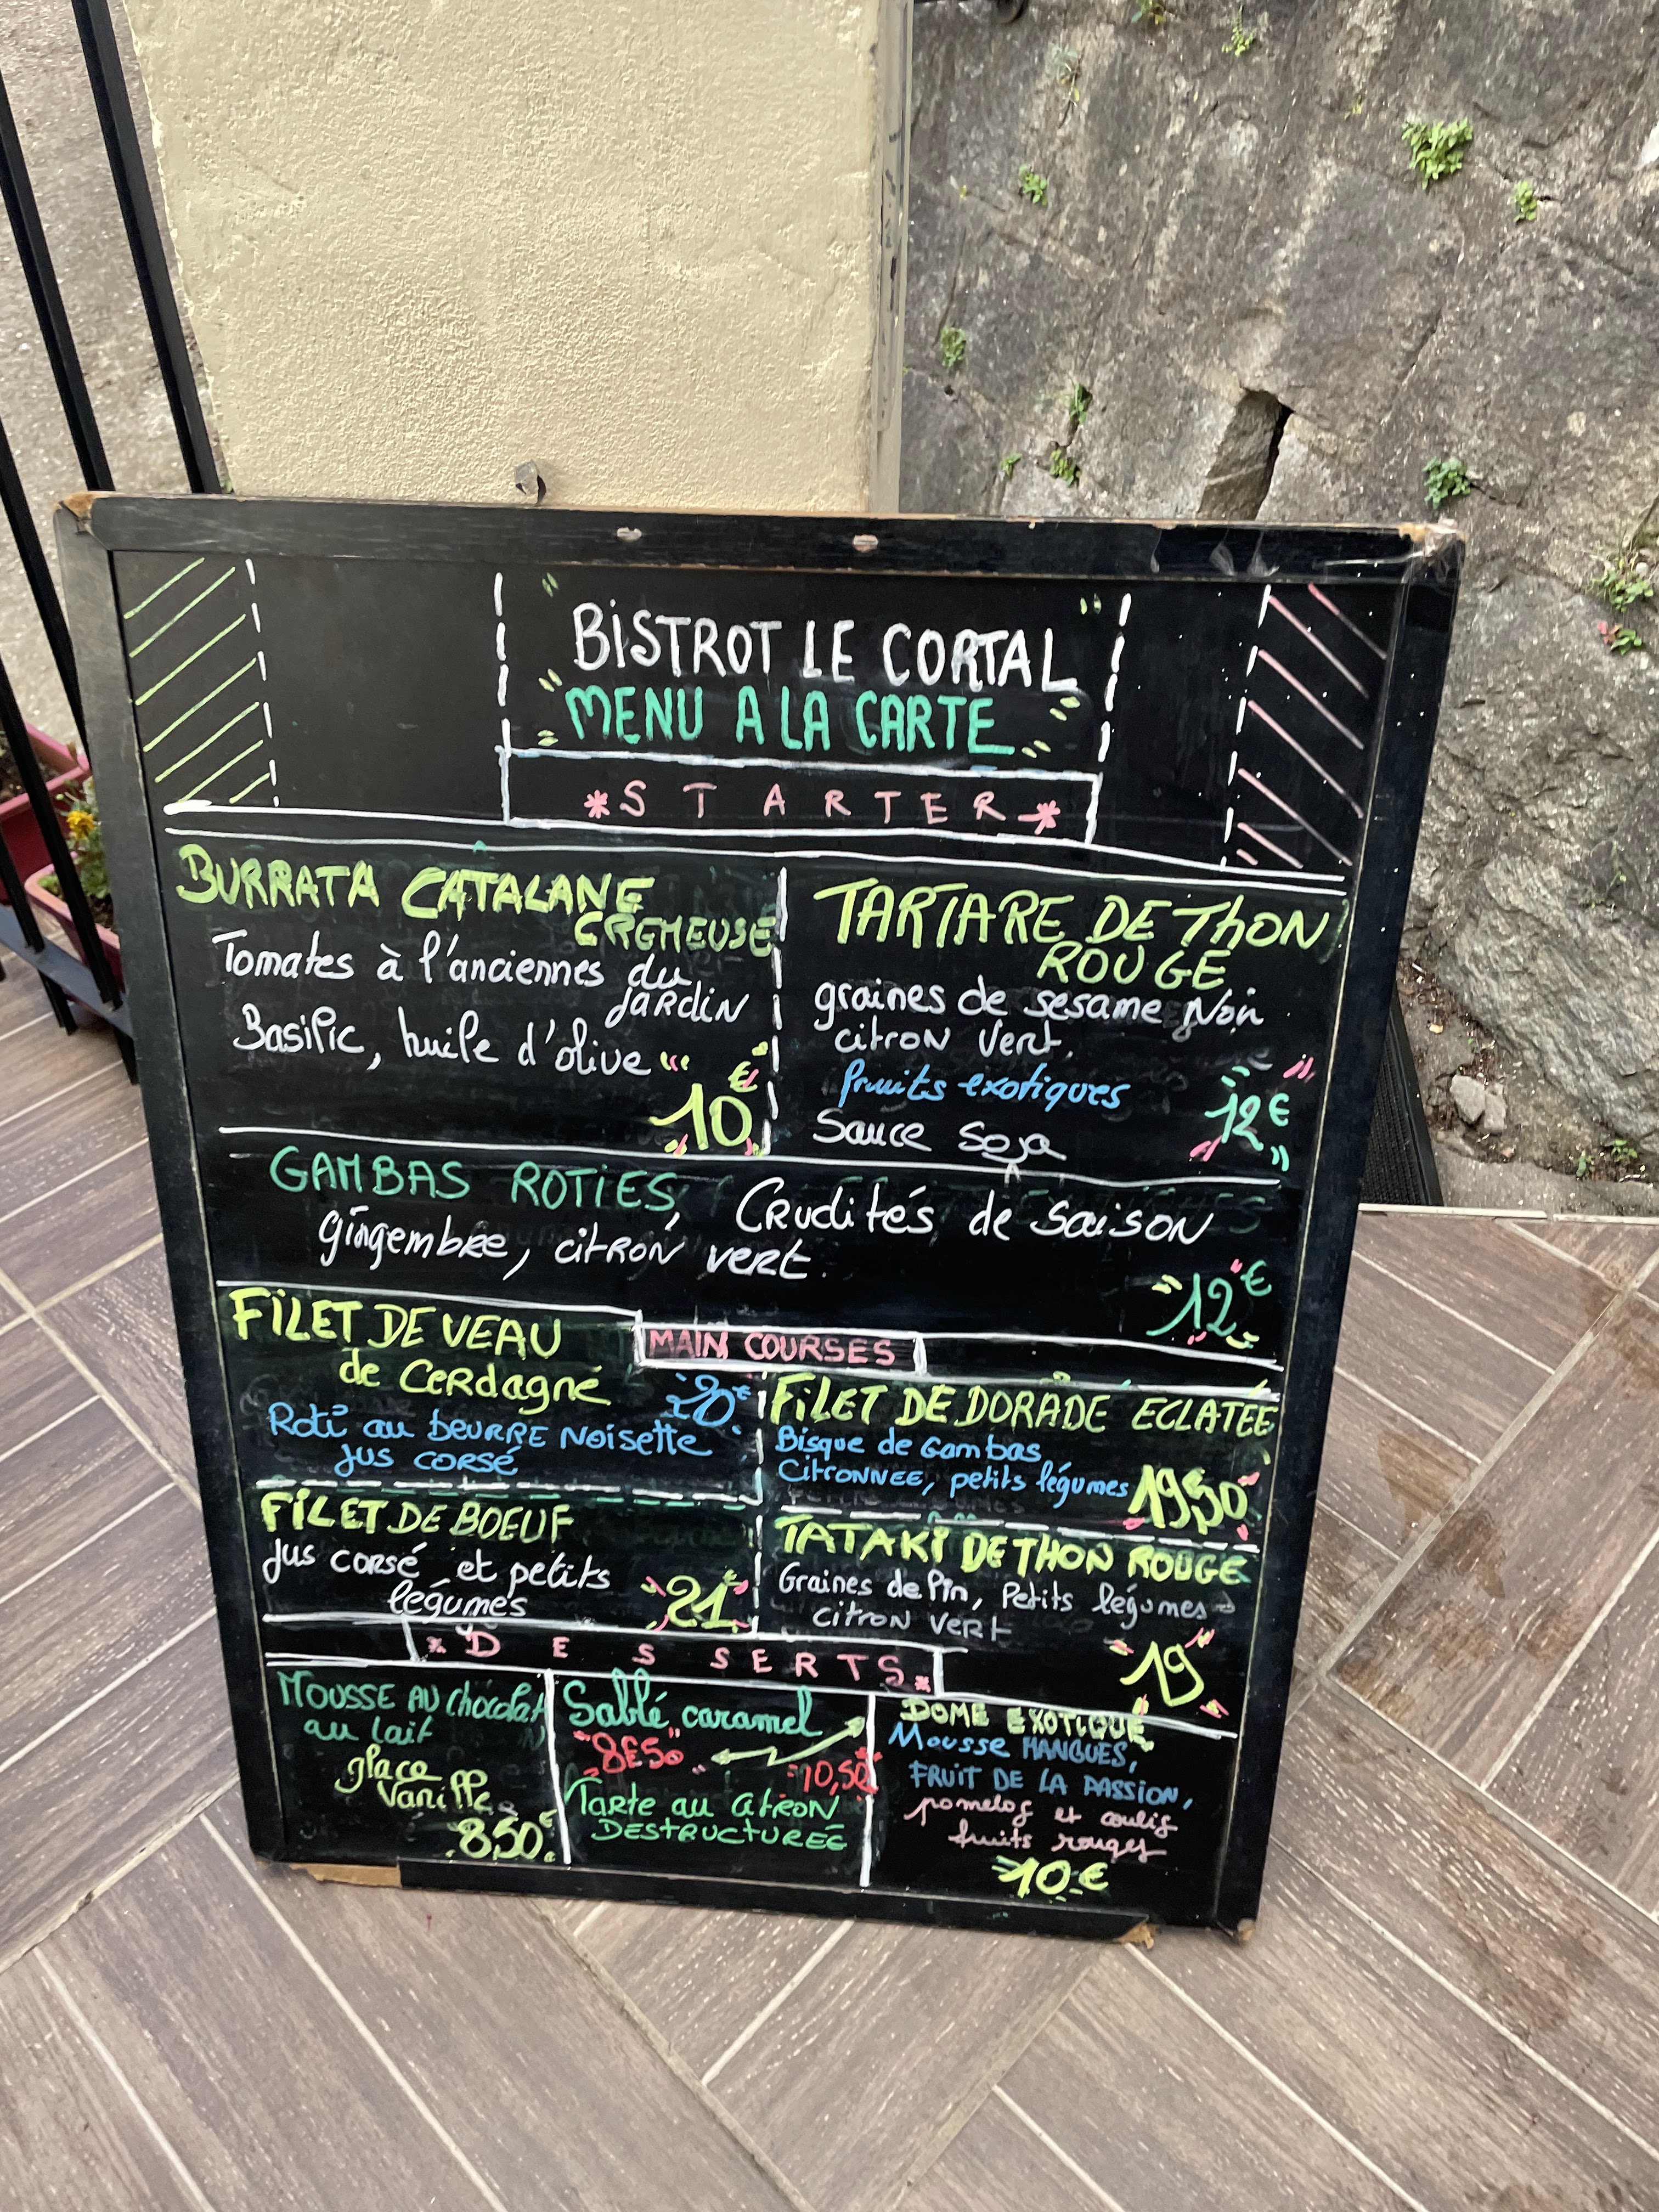 BISTROT LE CORTAL
MENU A LA CARTE
*STARTER*
BURRATA CATALANE
CREMEUSE
Tomates à l'anciennes du
JARDIN
Basilic, huile d'olive
10€
TARTARE DE THON
ROUGE
graines de sesame Noir
citron vert.
fruits exotiques
Sauce Soja
12€
GAMBAS ROTIES, Crudités de Saison
gingembre, citron vert.
12€
MAIN COURSES
FILET DE VEAU
de Cerdagne
20€
Roti au beurre Noisette
Jus corsé
FILET DE DORADE ECLATEE
Bisque de Gambas
Citronnee, petits légumes
19,50
FILET DE BOEUF
Jus corsé et petits
légumes
21€
TATAKI DE THON ROUGE
Graines de Pin, Petits légumes
citron vert
19
*DESSERTS*
MOUSSE AU chocolat
au lait
glace
Vanille
8,50€
Sablé caramel
8€50
10,50
Tarte au citron
DESTRUCTUREE
DOME EXOTIQUE
Mousse MANGUES,
FRUIT DE LA PASSION,
pomelos et coulis
fruits rouges
10€